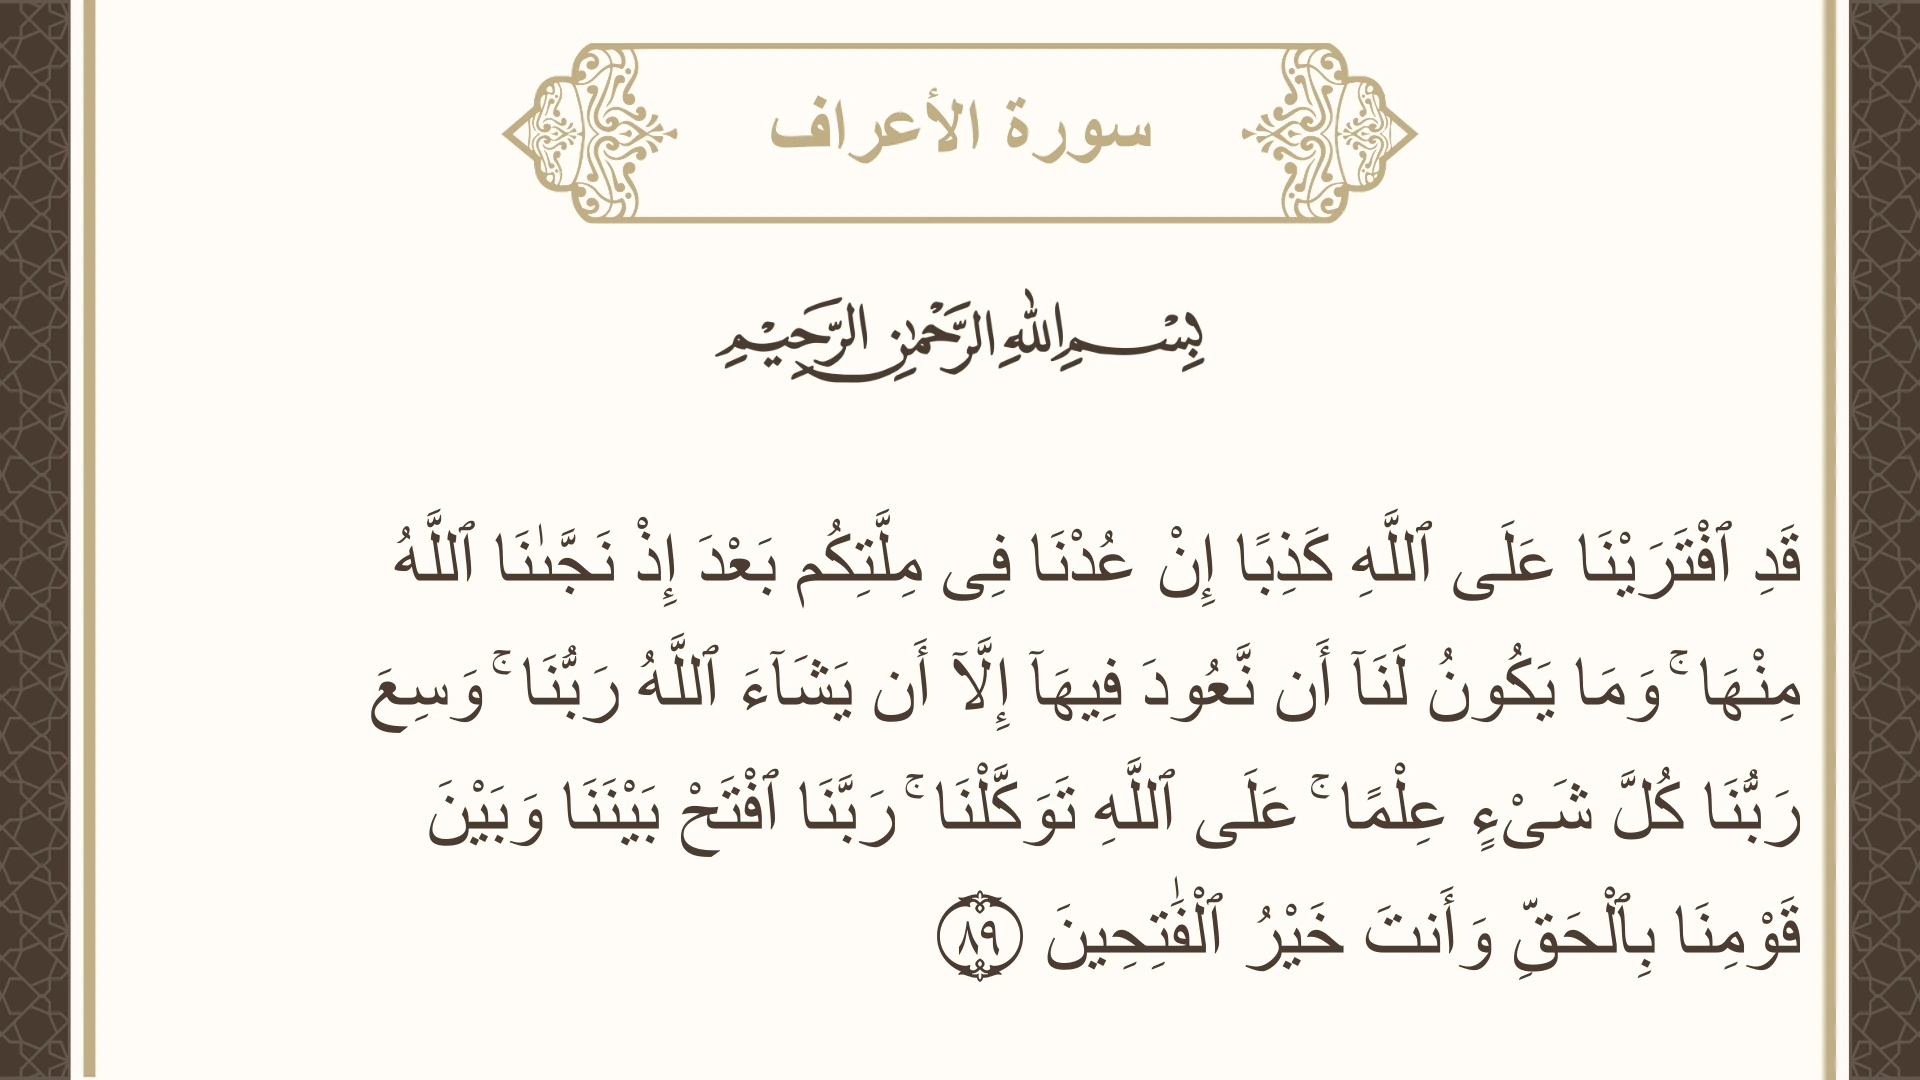 سورة الأعراف
بِسْمِ اللهِ الرَّحْمٰنِ الرَّحِيْمِ
قَدِ ٱفْتَرَيْنَا عَلَى ٱللَّهِ كَذِبًا إِنْ عُدْنَا فِى مِلَّتِكُم بَعْدَ إِذْ نَجَّىٰنَا ٱللَّهُ
مِنْهَا ۚ وَمَا يَكُونُ لَنَآ أَن نَّعُودَ فِيهَآ إِلَّآ أَن يَشَآءَ ٱللَّهُ رَبُّنَا ۚ وَسِعَ
رَبُّنَا كُلَّ شَىْءٍ عِلْمًا ۚ عَلَى ٱللَّهِ تَوَكَّلْنَا ۚ رَبَّنَا ٱفْتَحْ بَيْنَنَا وَبَيْنَ
قَوْمِنَا بِٱلْحَقِّ وَأَنتَ خَيْرُ ٱلْفَٰتِحِينَ ٨٩